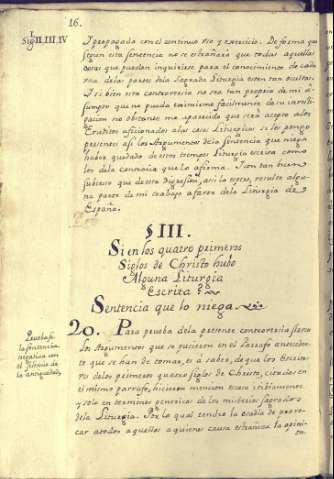 16.
Sig. I. II. III. IV
y propagada con el continuo uso y exercicio. De forma que
segun esta sentencia no se estrañará que todas aquellas
cosas que puedan inquirirse para el conocimiento de cada
una de las partes de la Sagrada Liturgia esten tan ocultas.
Y si bien esta controversia no sea tan propia de mi
sumpto que no pueda eximirme facilmente de su
pacion no obstante me ha parecido que será acepto a los
Eruditos aficionados a las cosas Liturgicas si les pongo
presentes así los Argumentos de la sentencia que niega
hubiese quedado de estos tiempos Liturgia escrita como
los de la contraria que lo afirma. Y con tan buen
subceso que de esta Digresion, así lo espero, resulte algu-
na parte de mi trabajo a favor de la Liturgia de
España.
§ III.
Si en los quatro primeros
Siglos de Christo hubo
Alguna Liturgia
Escrita?
Sentencia que lo niega.
Pruebase
la sentencia
negativa con
el silencio de
la antiguedad.
20. Para prueba de la presente controversia sirven
los Argumentos que se pusieron en el Parrafo antecede
nte que se han de tomar, es a saber, de que los Escrito
res de los primeros quatro siglos de Christo, citados en
el mismo parrafo, hicieron mencion escasisimamente
y solo en terminos genericos de los misterios sagrados
de la Liturgia. Por lo qual tendré la osadia de provo-
car a todos aquellos a quienes causa estrañeza la opini-
on